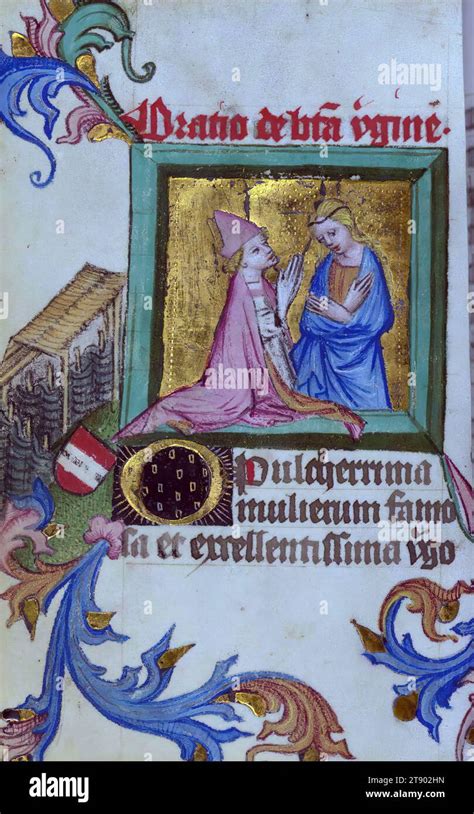 Oratio de btā ỽginē.
O Pulcherrima
mulierum famo
sa et excellentissima ỽgo
alamy
Image ID: 2T902HN
www.alamy.com